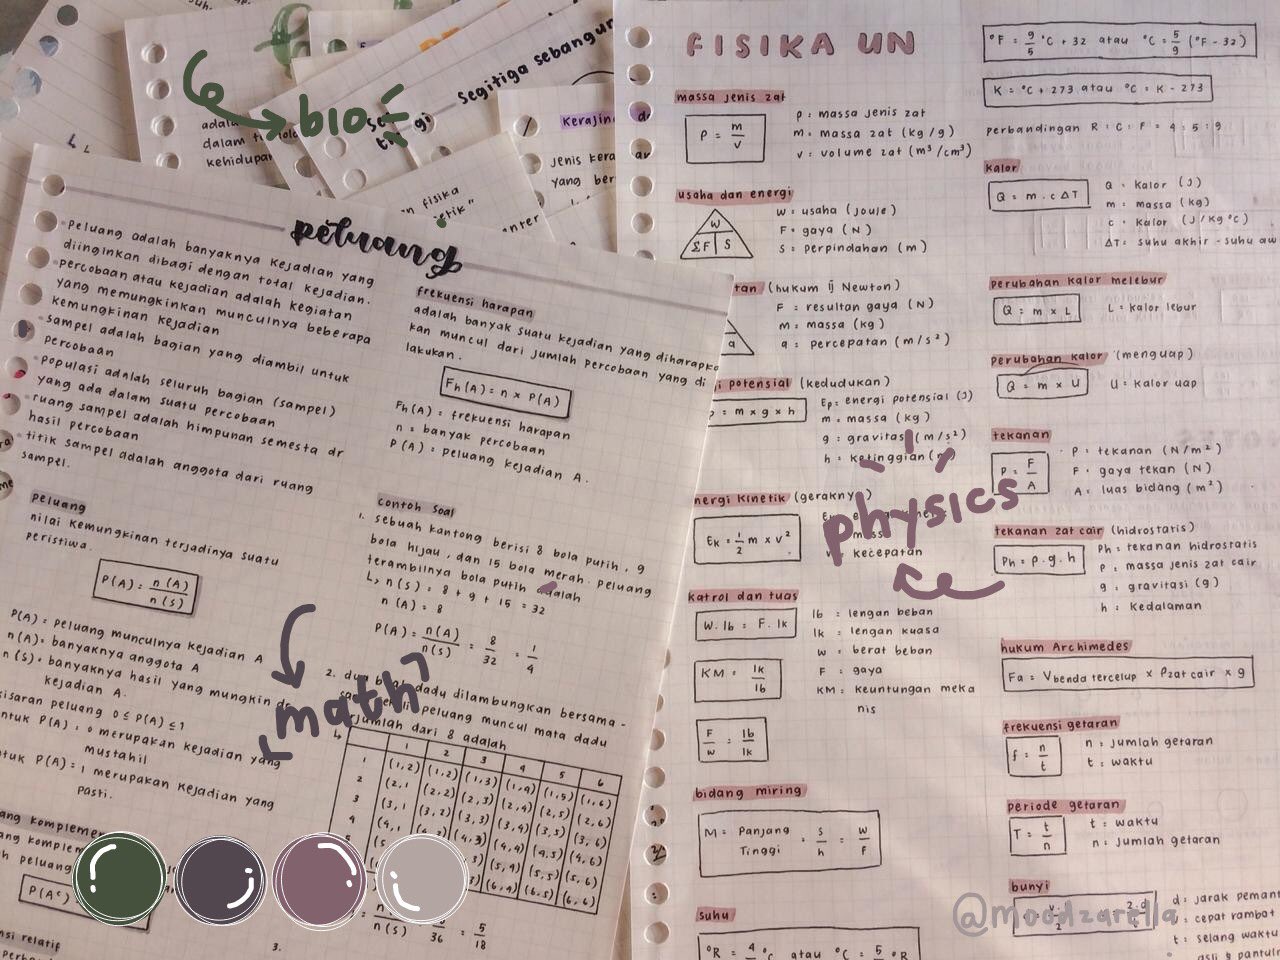 bio
Segitiga sebangun
Kerajin
jenis kera
yang ber
kehidupan
n fisika
etik"
peluang
• peluang adalah banyaknya kejadian yang
diinginkan dibagi dengan total kejadian.
• percobaan atau kejadian adalah kegiatan
yang memungkinkan munculnya beberapa
kemungkinan kejadian
• sampel adalah bagian yang diambil untuk
percobaan
• populasi adalah seluruh bagian (sampel)
yang ada dalam suatu percobaan
• ruang sampel adalah himpunan semesta dr
hasil percobaan
• titik sampel adalah anggota dari ruang
sampel.
peluang
nilai kemungkinan terjadinya suatu
peristiwa.
P(A) = n(A) / n(S)
P(A) = peluang munculnya kejadian A
n(A) = banyaknya anggota A
n(S) = banyaknya hasil yang mungkin dr
kejadian A.
kisaran peluang 0 ≤ P(A) ≤ 1
untuk P(A) = 0 merupakan kejadian yang
mustahil
tuk P(A) = 1 merupakan kejadian yang
pasti.
ang komplemen
P(Aᶜ)
nsi relatif
frekuensi harapan
adalah banyak suatu kejadian yang diharapka
kan muncul dari jumlah percobaan yang di
lakukan.
Fh(A) = n × P(A)
Fh(A) = frekuensi harapan
n = banyak percobaan
P(A) = peluang kejadian A.
contoh soal
1. sebuah kantong berisi 8 bola putih, 9
bola hijau, dan 15 bola merah. peluang
terambilnya bola putih adalah
↳ n(S) = 8 + 9 + 15 = 32
n(A) = 8
P(A) = n(A) / n(S) = 8 / 32 = 1 / 4
math
2. dua dadu dilambungkan bersama -
peluang muncul mata dadu
berjumlah dari 8 adalah
1 2 3 4 5 6
1 (1,2) (1,2) (1,3) (1,4) (1,5) (1,6)
2 (2,1 (2,2) (2,3) (2,4) (2,5) (2,6)
3 (3,1 (3,2) (3,3) (3,4) (3,5) (3,6)
4 (4,1 (4,3) (4,4) (4,5) (4,6)
(5,4) (5,5) (5,6)
(6,4) (6,5) (6,6)
n(S) 36 = 5 / 18
3.
FISIKA UN
massa jenis zat
ρ = m / v
ρ = massa jenis zat
m = massa zat (kg/g)
v = volume zat (m³/cm³)
usaha dan energi
W
ΣF S
W = usaha (joule)
F = gaya (N)
S = perpindahan (m)
tan (hukum ij Newton)
a
F = resultan gaya (N)
m = massa (kg)
a = percepatan (m/s²)
i potensial (kedudukan)
p = m × g × h
Ep = energi potensial (J)
m = massa (kg)
g = gravitasi (m/s²)
h = ketinggian
nergi kinetik (geraknya)
Ek = 1/2 m × v²
mass
v = kecepatan
physics
katrol dan tuas
W. lb = F. lk
KM = lk / lb
F / w = lb / lk
lb = lengan beban
lk = lengan kuasa
w = berat beban
F = gaya
KM = keuntungan meka
nis
bidang miring
M = Panjang / Tinggi = s / h = W / F
suhu
°R = 4 °C atau °C = 5 °R
°F = 9/5 °C + 32 atau °C = 5/9 (°F - 32)
K = °C + 273 atau °C = K - 273
perbandingan R : C : F = 4 : 5 : 9
kalor
Q = m . c ΔT
Q = kalor (J)
m = massa (kg)
c = kalor (J/kg°C)
ΔT = suhu akhir - suhu aw
perubahan kalor melebur
Q = m × L
L = kalor lebur
perubahan kalor (menguap)
Q = m × U
U = kalor uap
tekanan
P = F / A
P = tekanan (N/m²)
F = gaya tekan (N)
A = luas bidang (m²)
tekanan zat cair (hidrostatis)
Ph = ρ . g . h
Ph = tekanan hidrostatis
ρ = massa jenis zat cair
g = gravitasi (g)
h = kedalaman
hukum Archimedes
Fa = Vbenda tercelup × ρzat cair × g
frekuensi getaran
f = n / t
n = jumlah getaran
t = waktu
periode getaran
T = t / n
t = waktu
n = jumlah getaran
bunyi
d = jarak pemant
v = cepat rambat
t = selang waktu
asli & pantul
@moodzarella